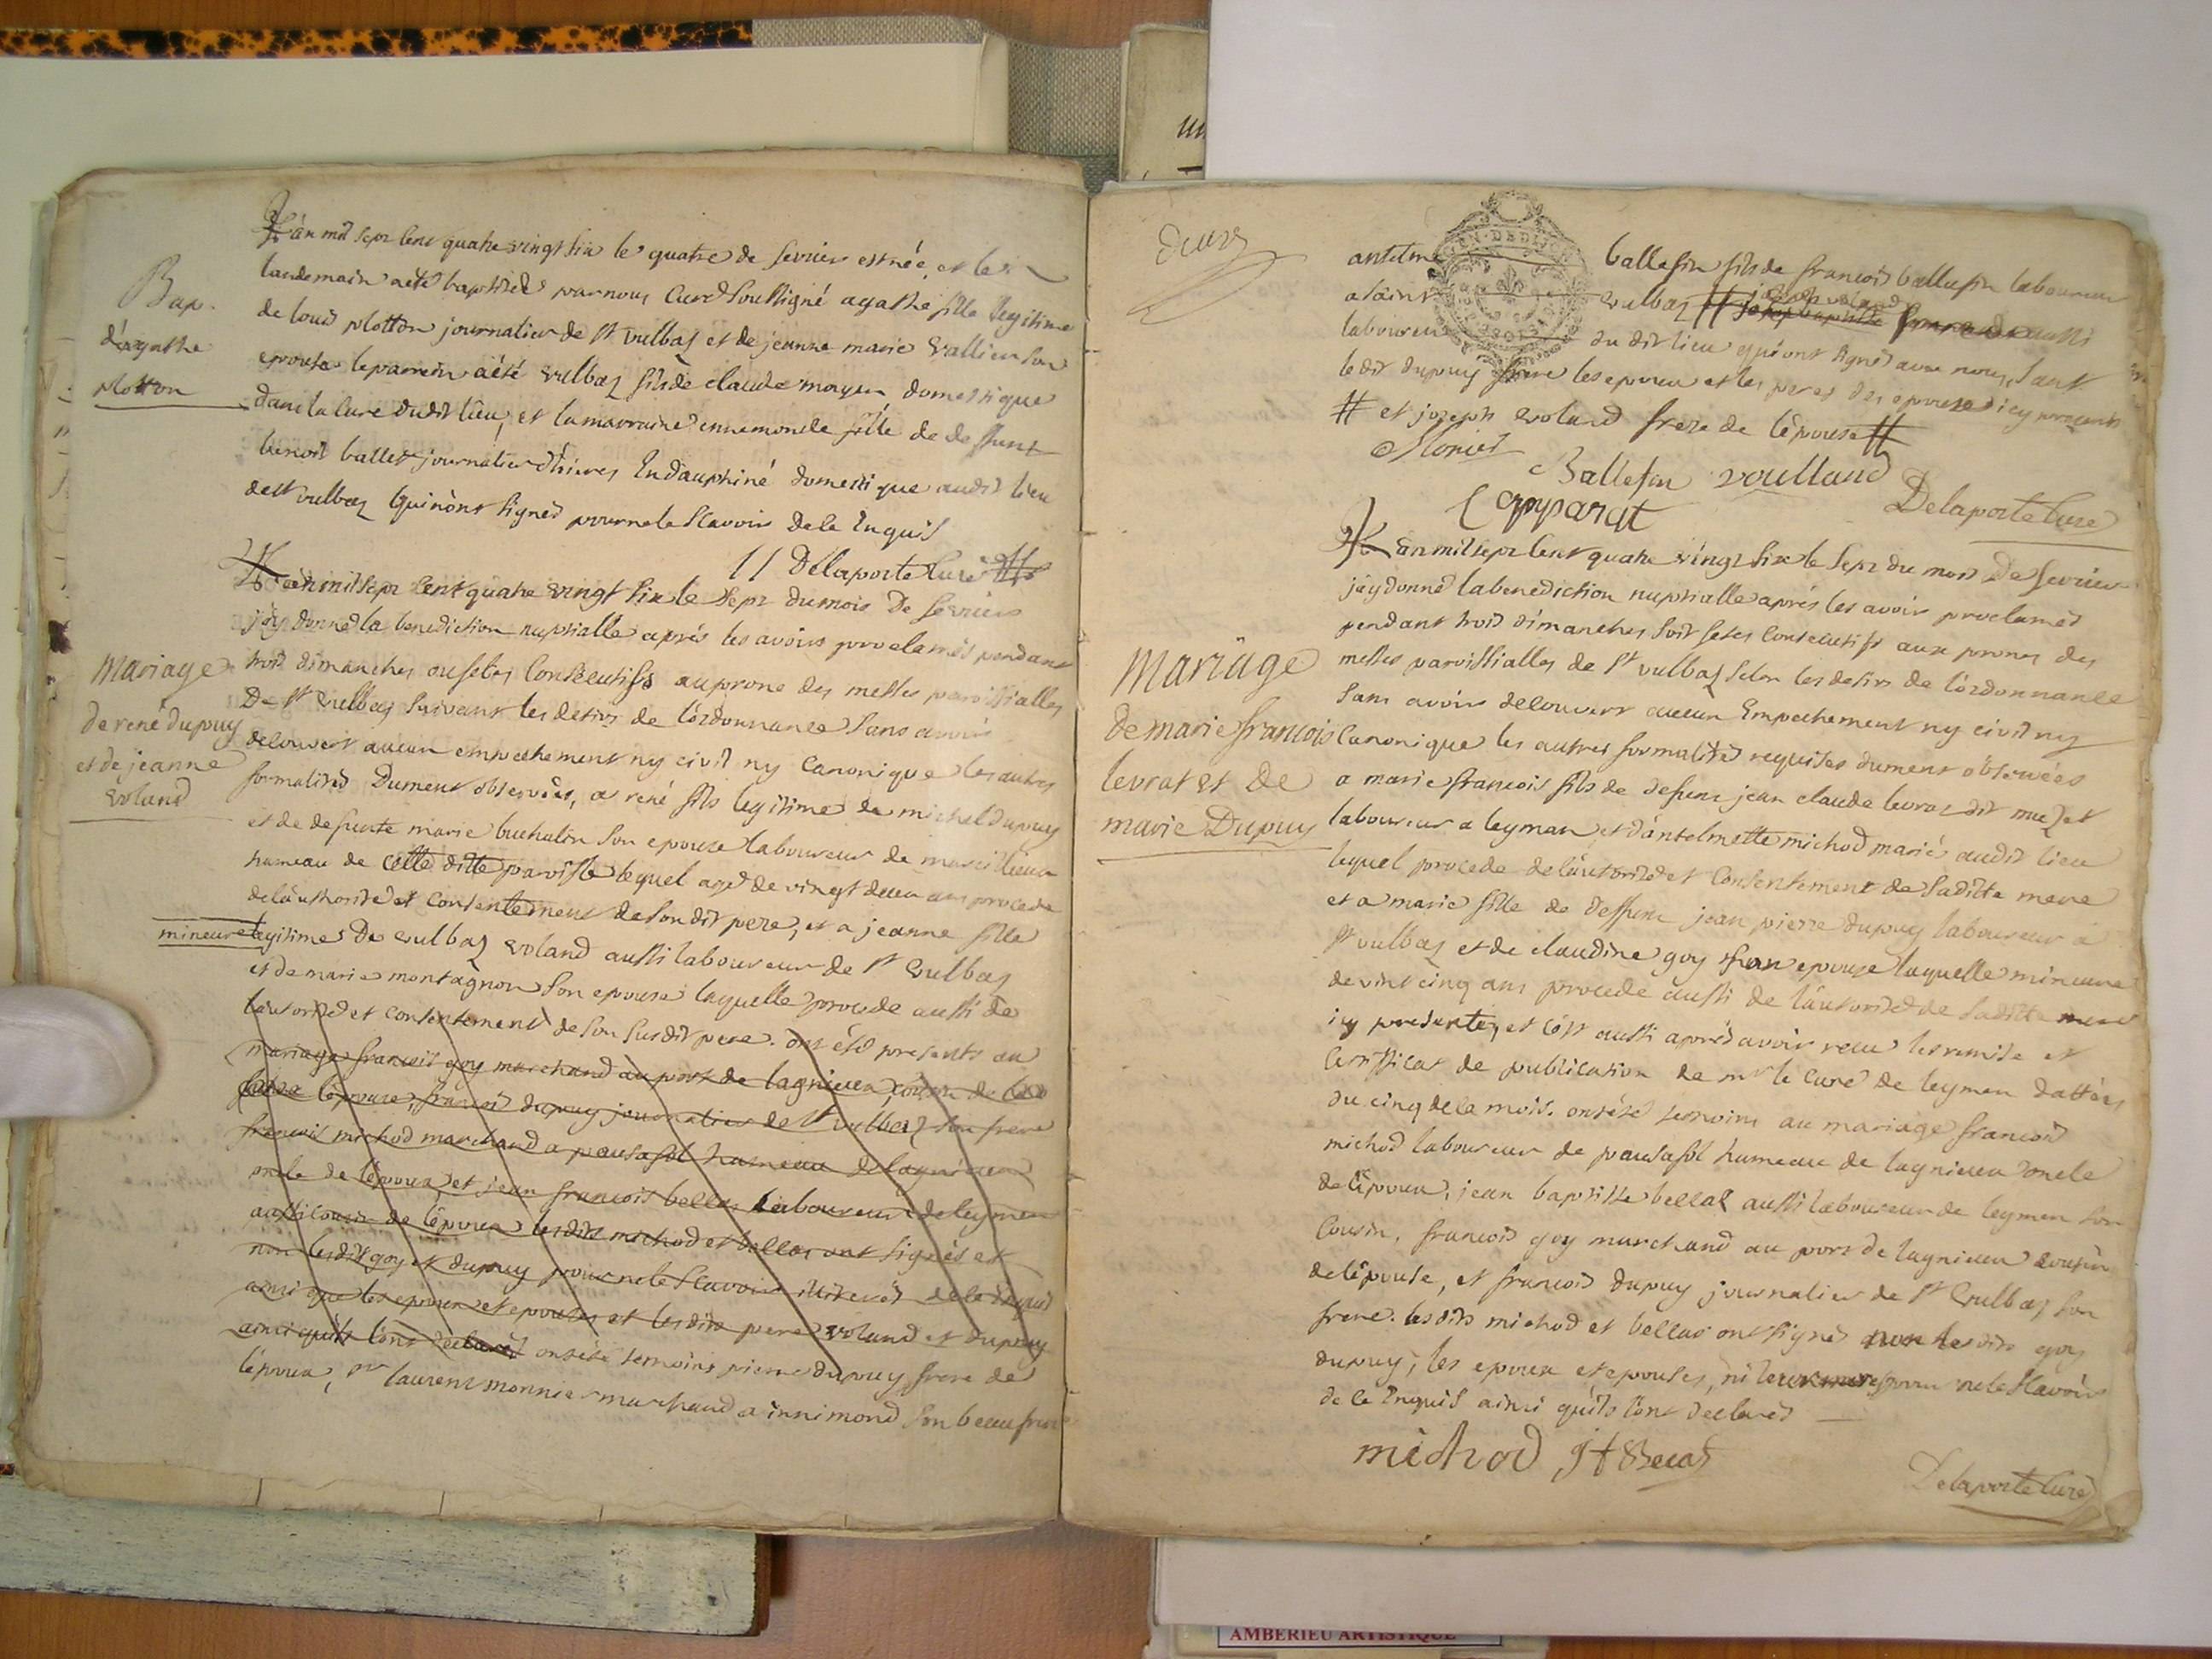 L'an mil sept cent quatre vingt six le quatre de fevrier est née, et le
landemain a eté baptisée par nous curé soussigné agathe fille legitime
de louis plotton journalier de st vulbaz et de jeanne marie vallier son
epouse le parrein a été vulbaz fils de claude moyen domestique
dans la cure dudit lieu, et la marraine ennemonde fille de deffunt
benoit ballet journalier d'hieres en dauphiné domestique audit lieu
de st vulbaz qui n'ont signés pour ne le scavoir de ce enquis
Delaporte curé
Bap.
d'agathe
plotton
L'an mil sept cent quatre vingt six le sept du mois de fevrier
j'ay donné la benediction nuptialle aprés les avoirs proclamés pendant
trois dimanches ou fetes consecutifs au prone des messes paroissialles
De st vulbaz suivant les desirs de l'ordonnance sans avoir
decouvert aucun empechement ny civil ny canonique les autres
formalités dument observées, a rené fils legitime de michel dupuy
et de defunte marie buchalin son epouse laboureur de marcillieux
hameau de cette ditte paroisse lequel agé de vingt deux ans procede
de l'authorité et consentement de son dit pere, et a jeanne fille
mineure legitime De vulbaz voland aussi laboureur de st vulbaz
et de marie montagnon son epouse laquelle procede aussi de
l'autorité et consentement de son susdit pere. ont été presents au
mariage francois goy marchand au port de lagnieu cousin de
l'epouse, francois dupuy journalier de st vulbaz son frere
francois michod marchand a pausafol hameau de lagnieu
oncle de l'epoux et jean francois bellas laboureur de leymen
aussi cousin de l'epoux lesdits michod et bellas ont signés et
non lesdits goy et dupuy pour ne le scavoir de ce enquis
ainsi que les epoux et epouses et lesdits pere voland et dupuy
ainsi quils l'ont declaré ont été temoins pierre dupuy frere de
l'epoux, sr laurent monnier marchand a innimond son beau frere
mariage
de rené dupuy
et de jeanne
voland
deux
antelme ballefin fils de francois ballefin laboureur
a saint vulbaz # joseph voland aussi
laboureur du dit lieu qui ont signés avec nous, sant
le dit dupuy les epoux et les peres des epouse icy presents
# et joseph voland frere de l'épouse #
Monier
Ballefin voulland
Coppparat Delaporte curé
L'an mil sept cent quatre vingt six le sept du mois De fevrier
j'ay donné la benediction nuptialle aprés les avoir proclamés
pendant trois dimanches soit fetes consecutifs aux prones des
messes paroissialles de st vulbaz selon les desirs de l'ordonnance
sans avoir decouvert aucun Empechement ny civil ny
canonique les autres formalités requises dument observées
a marie francois fils de defunt jean claude levrat dit muzet
laboureur a leyman et d'antelmette michod mariés audit lieu
lequel procede de l'autorité et consentement de saditte mere
et a marie fille de deffunt jean pierre dupuy laboureur a
st vulbaz et de claudine goy son epouse laquelle mineure
de vint cinq ans procede aussi de l'autorité de saditte mere
icy presente, et c'est aussi aprés avoir receu les remise et
certificat de publication de mr le curé de leymen dattées
du cinq de ce mois. ont été temoins au mariage francois
michod laboureur de pausafol hameau de lagnieu oncle
de l'epoux, jean baptiste bellas aussi laboureur de leymen son
cousin, francois goy marchand au port de lagnieu cousin
de l'epouse, et francois dupuy journalier de st vulbaz son
frere. lesdits michod et bellas ont signés non lesdits goy
dupuy, les epoux et epouses, ni leurs meres pour ne le scavoir
de ce Enquis ainsi quils l'ont declarés
michod
Delaporte curé
Mariage
de marie francois
levrat et De
marie Dupuy
AMBERIEU ARTISTIQUE